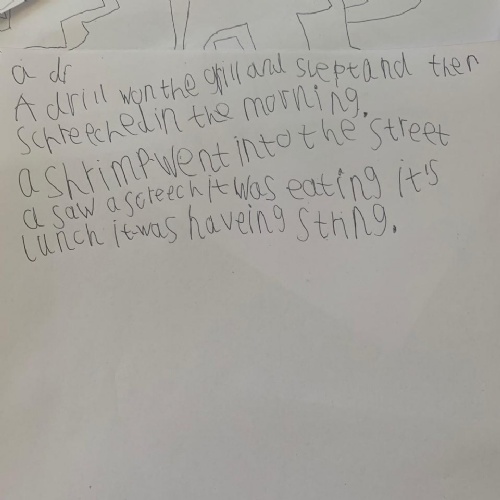 a dr
A drill won the grill and slept and then
Schreeched in the morning.
a shrimp went into the street
a saw a screech it was eating it's
lunch it was haveing string.